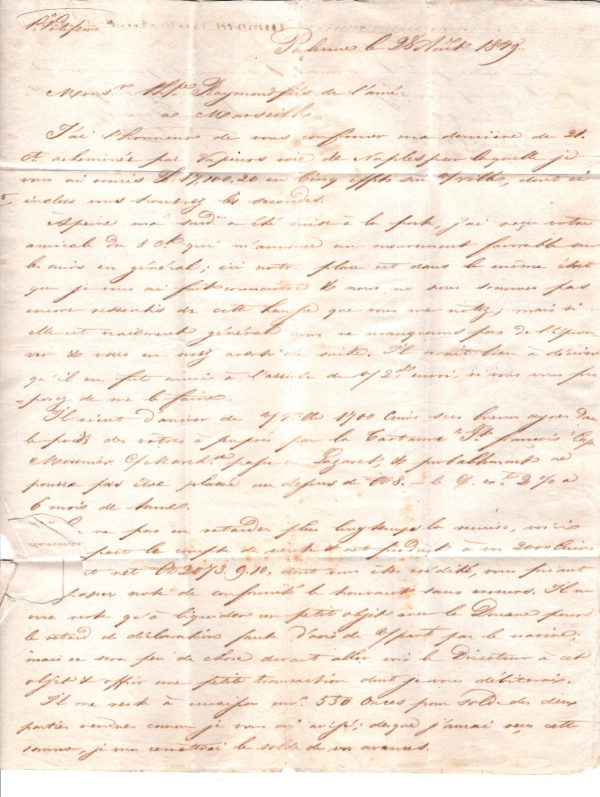 Palerme le 28 Août 1839
Mons.r Raymond fils de l'ainé
à Marseille
J'ai l'honneur de vous confirmer ma dernière du 21.
C.t acheminée par Vapeur voie de Naples par laquelle je
vous ai remis 17,100,20 en cinq sur V/ville, dont ci
inclus vous trouverez les secondes.
Apeine ma sud.e a été mise à la poste, j'ai reçu votre
amicale du 8 C.t qui m'annonce un mouvement favorable sur
les cuirs en général; ici notre place est dans le même état
que je vous ai fait connaitre & nous ne nous sommes pas
encore ressentis de cette hausse que vous me notez, mais si
elle est vraiment générale nous ne manquerons pas de l'éprou
ver & vous en serez avisé de suite. Il serait bien à désirer
qu'il en fut ainsi à l'arrivée de envoi si vous vous pro
=posez de me le faire.
Il vient d'arriver de V/Ville 1700 Cuirs secs buenos ayres dans
le poids des votres à peu près par la Tartanne S.t françois Cap.
Mounier, passe au Lazaret, & probablement ne
pourra pas être placée au dessus de 8. – le 2 % a
6 mois de terme.
ne pas en retarder plus longtemps la remise, voici
le compte de vente & net produit à vos 2000 Cuirs
net 2073.9.10. dont vous êtes crédité, vous priant
passer note de conformité le trouvant sans erreurs. Il ne
me reste qu'à liquider un petit objet avec la Douane pour
le retard de déclaration faute d'avis de V/part par le navire.
mais ce sera peu de chose devant aller voir le Directeur à cet
objet & offrir une petite transaction dont je vous débiterais.
Il me reste à encaisser env.n 550 Onces pour solde des deux
parties vendues comme je vous ai avisé; dèsque j'aurai reçu cette
somme, je vous remettrai le solde de vos avances.